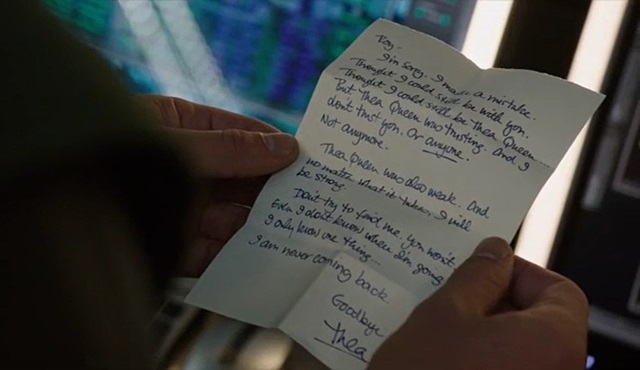 Roy-
I'm sorry. I made a mistake.
Thought I could still be with you.
Thought I could still be Thea Queen....
But Thea Queen was trusting. And I
don't trust you. Or anyone.
Not anymore.
Thea Queen was also weak. And
no matter what it takes, I will
be strong.
Don't try to find me. You won't.
Even I don't know where I'm going
I only know one thing...
I am never coming back
Goodbye
Thea